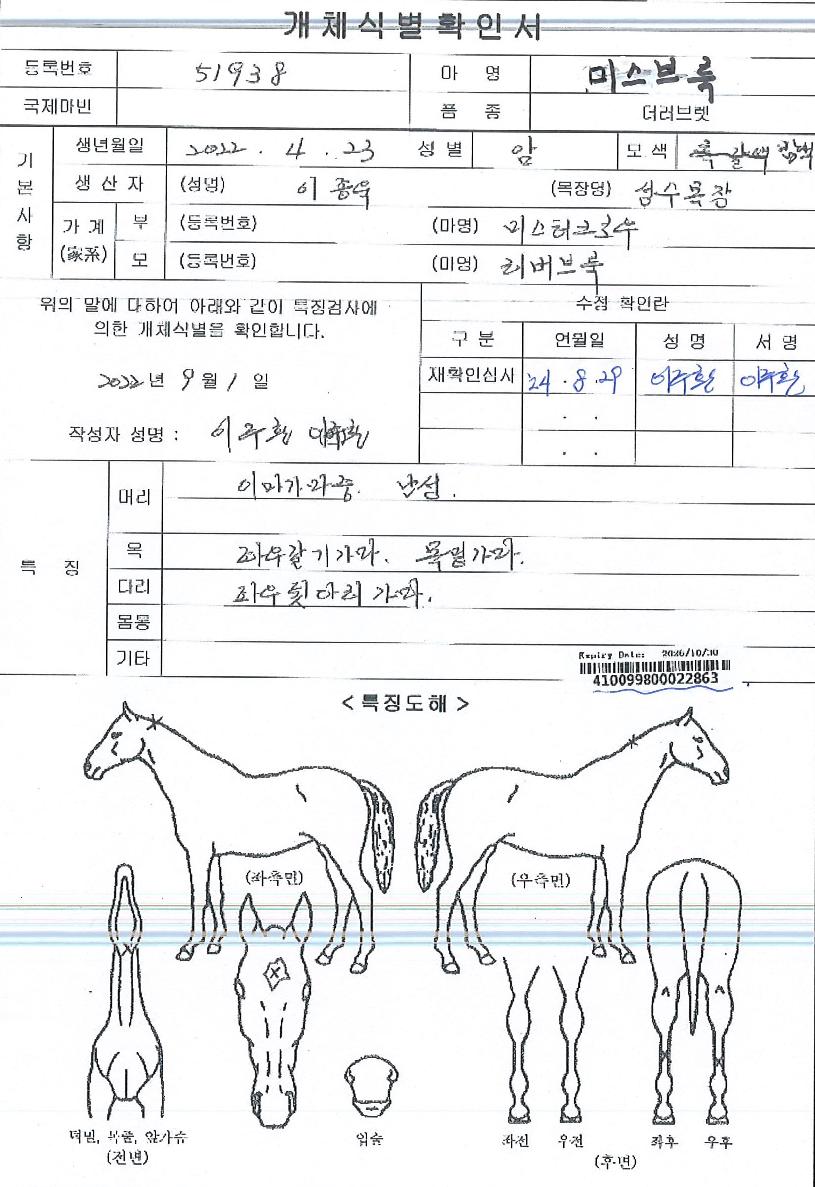 개체식별확인서
등록번호 51938 마 명 미스브룩
국제마번 품 종 더러브렛
기본사항
생년월일 2022 . 4 . 23 성 별 암 모 색
생 산 자 (성명) 이종욱 (목장명) 성수목장
가 계 (家系) 부 (등록번호) (마명)
모 (등록번호) (마명) 리버브룩
위의 말에 대하여 아래와 같이 특징검사에
의한 개체식별을 확인합니다.
2022년 9월 1 일
작성자 성명 : 이주환
수정 확인란
구 분 연월일 성 명 서 명
재확인심사 '24 . 8 . 29 이주환 이주환
. .
. .
특 징
머리 이마가마중. 난성.
목 좌우갈기가마. 목밑가마.
다리 좌우뒷다리가마.
몸통
기타
Expiry Date: 2026/10/30
410099800022863
< 특징도해 >
(좌측면) (우측면)
턱밑, 목줄, 앞가슴
(전면)
입술
좌전 우전 좌후 우후
(후면)